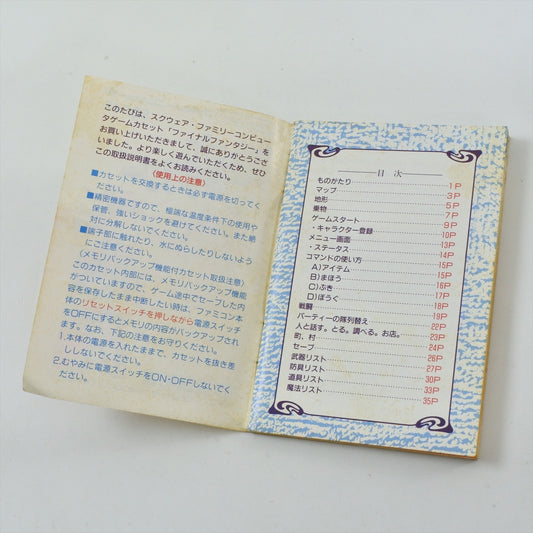 このたびは、スクウェア・ファミリーコンピュー
タゲームカセット「ファイナルファンタジー」を
お買い上げいただきまして、誠にありがとうござ
いました。より楽しく遊んでいただくため、ぜひ
この取扱説明書をよくお読みください。
〈使用上の注意〉
■カセットを交換するときは必ず電源を切ってく
ださい。
■精密機器ですので、極端な温度条件下の使用や
保管、強いショックを避けてください。また絶
対に分解しないでください。
■端子部に触れたり、水にぬらしたりしないよう
にご注意ください。
(メモリバックアップ機能付カセット取扱注意)
このカセット内部には、メモリバックアップ機能
がついていますので、ゲーム途中でセーブした内
容を保存したまま中断したい時は、ファミコン本
体のリセットスイッチを押しながら電源スイッチ
をOFFにするとメモリの内容がバックアップされ
ます。なお、下記の注意をお守りください。
1.本体の電源を入れたままで、カセットを抜き差
ししないでください。
2.むやみに電源スイッチをON・OFFしないでく
ださい。
目 次
ものがたり 1P
マップ 3P
地形 5P
乗物 7P
ゲームスタート 9P
・キャラクター登録 10P
メニュー画面 13P
・ステータス 14P
コマンドの使い方 15P
A)アイテム 15P
B)まほう 16P
C)ぶき 17P
D)ぼうぐ 18P
戦闘 19P
パーティーの隊列替え 22P
人と話す。とる。調べる。お店。 23P
町、村 24P
セーブ 26P
武器リスト 27P
防具リスト 30P
道具リスト 33P
魔法リスト 35P